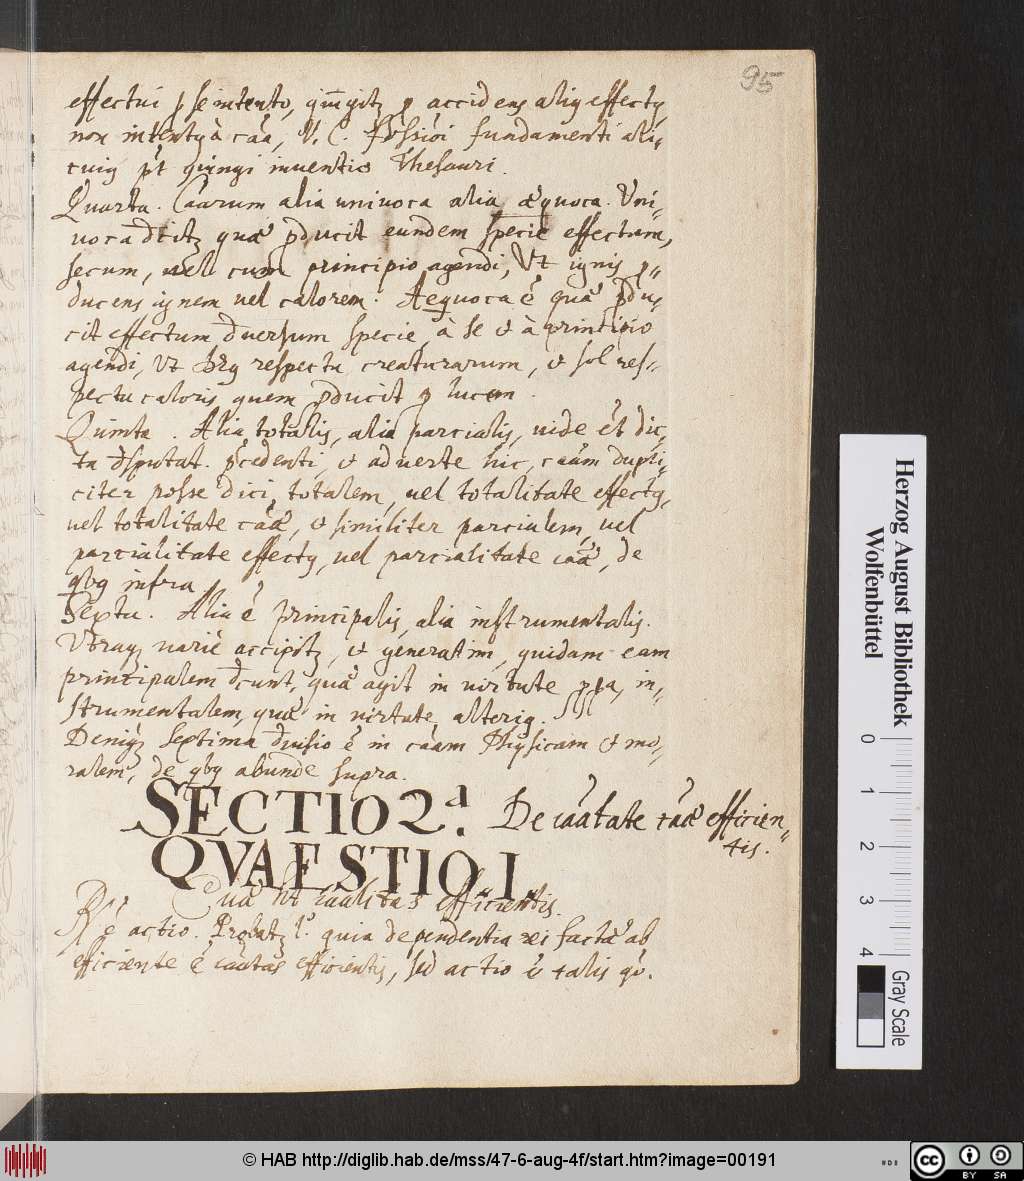 95
effectui p se intento, qm̄gitz p accidens aliq effectq
non intentq à caā, V. C. fossioi fundamenti ali-
cuiq pt inventio Thesauri.
Quarta. Caarum alia univoca alia, æquoca. Uni-
voca dicitz quæ pducit eundem specie effectum,
secum, vel cum principio agendi, Vt ignis p-
ducens ignem vel calorem. Aequoca ē quæ pdu-
cit effectum dversum specie, à se et à principio
agendi, Vt respectu creaturarum, et sol res-
pectu caloris quem pducit p lucem.
Quinta. Alia totalis, alia parcialis, vide ēt dic-
ta dsputat. pcedenti, et adverte hic, caām dupli-
citer posse dici totalem, vel totalitate effectq,
vel totalitate caæ, et similiter parcialem, vel
parcialitate effectq, vel parcialitate caæ, de
qbq infra
Sexta. Alia ē principalis, alia instrumentalis.
Utraqz variè accipitz, et generatim, quidam eam
principalem dcunt, quæ agit in virtute ppa, in-
strumentalem, quæ in virtute alteriq.
Deniqz septima dvisio ē in caām Physicam et mo-
ralem, de qbq abunde supra.
SECTIO 2a. De caātate caæ efficien-
tis.
QVAESTIO I.
Quæ sit caālitas efficientis.
Rr ē actio. Probatz 1o. quia dependentia rei factæ ab
efficiente ē caātas efficientis, sed actio ē talis go.
Herzog August Bibliothek
Wolfenbüttel
0
1
2
3
4
Gray Scale
© HAB http://diglib.hab.de/mss/47-6-aug-4f/start.htm?image=00191
cc
BY
SA